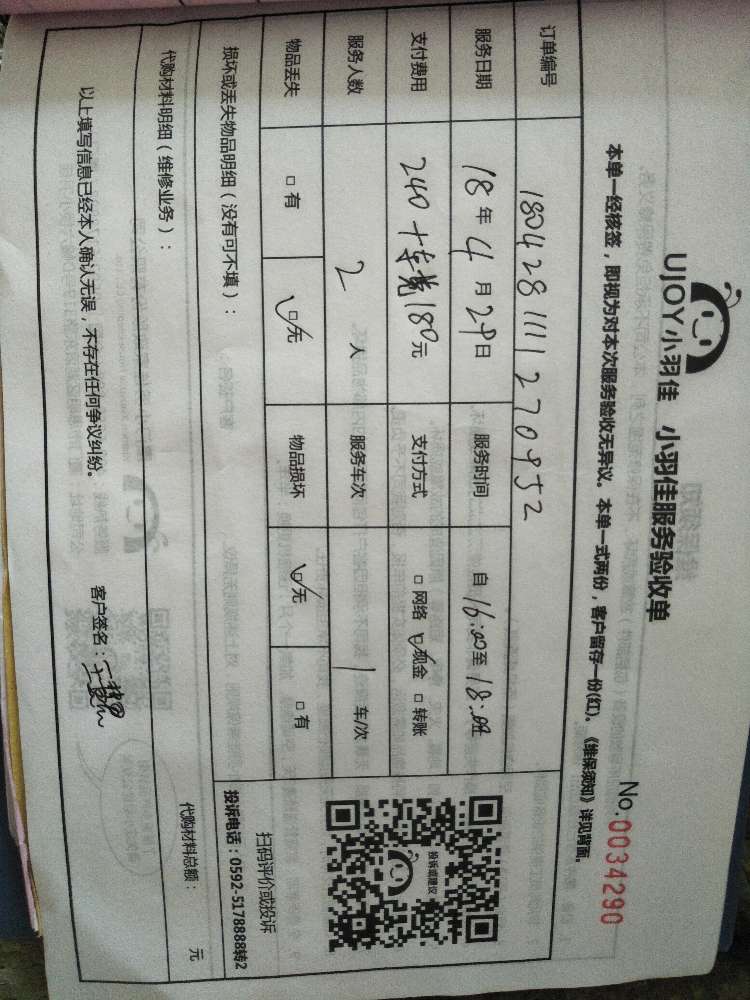 UJOY小羽佳 小羽佳服务验收单
No.0034290
本单一经核签，即视为对本次服务验收无异议。本单一式两份，客户留存一份(红)。《维保须知》详见背面。
订单编号 180428111270952
服务日期 18年4月29日 服务时间 自16:00至18:00
支付费用 240+车费180元 支付方式 □网络 ☑现金 □转账
服务人数 2人 服务车次 1车/次
物品丢失 □有 ☑无 物品损坏 ☑无 □有
投诉或建议
扫码评价或投诉
投诉电话：0592-5178888转2
损坏或丢失物品明细（没有可不填）：
代购材料明细（维修业务）： 代购材料总额： 元
以上填写信息已经本人确认无误，不存在任何争议纠纷。 客户签名：